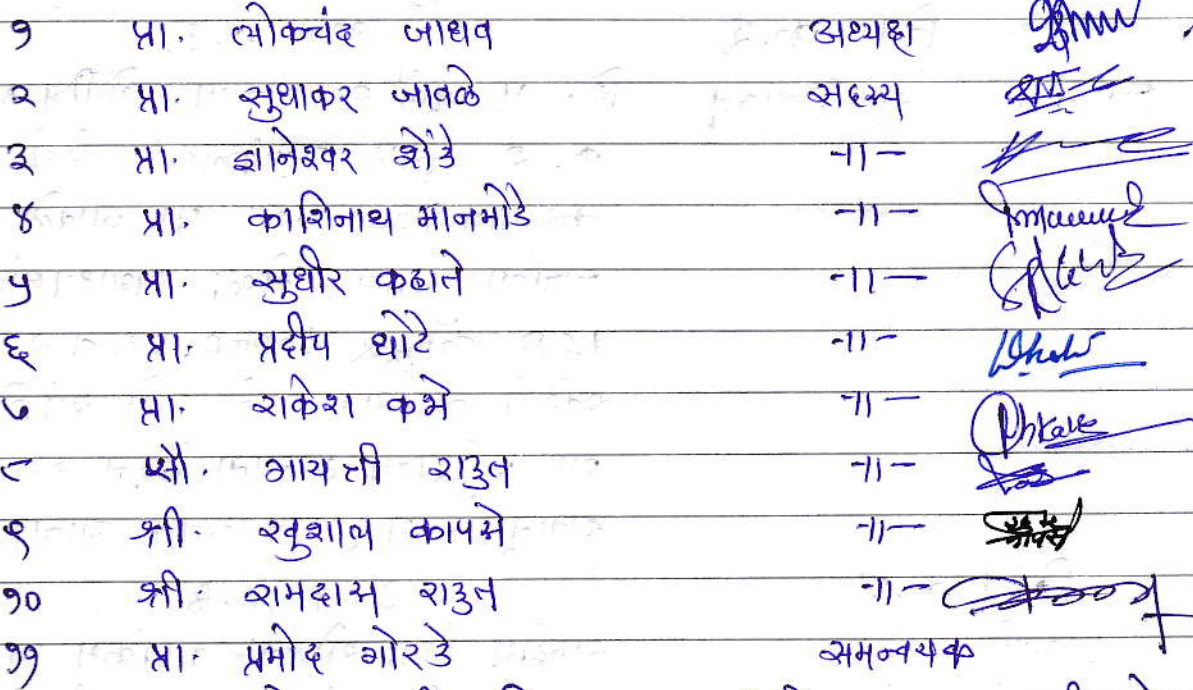 १ प्रा. त्योकचंद जाधव अध्यक्ष
२ प्रा. सुधाकर जावळे सदस्य
३ प्रा. ज्ञानेश्वर शेंडे -॥-
४ प्रा. काशिनाथ मानमोडे -॥-
५ प्रा. सुधीर कहाते -॥-
६ प्रा. प्रदीप धोटे -॥-
७ प्रा. राकेश कभे -॥-
८ सौ. गायत्री राऊत -॥-
९ श्री. खुशाल कापसे -॥-
१० श्री. रामदास राऊत -॥-
११ प्रा. प्रमोद गोरडे समन्वयक